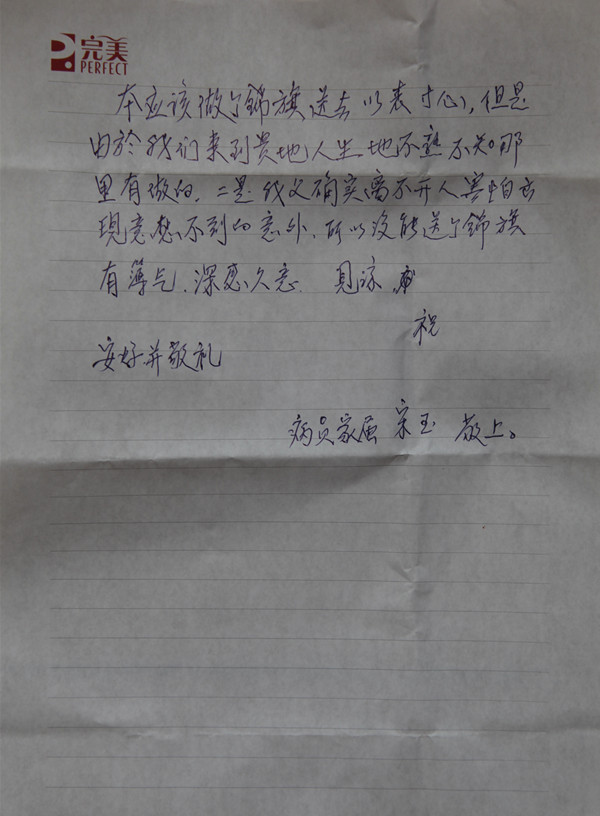 完美
PERFECT
本应该做个锦旗送去以表寸心,但是
由於我们来到贵地人生地不熟不知那
里有做的,二是伐父确实离不开人害怕出
现意想不到的意外,所以没能送个锦旗
有薄乞,深感久意. 見谅,
祝
安好并敬礼
病员家属 宋玉 敬上。